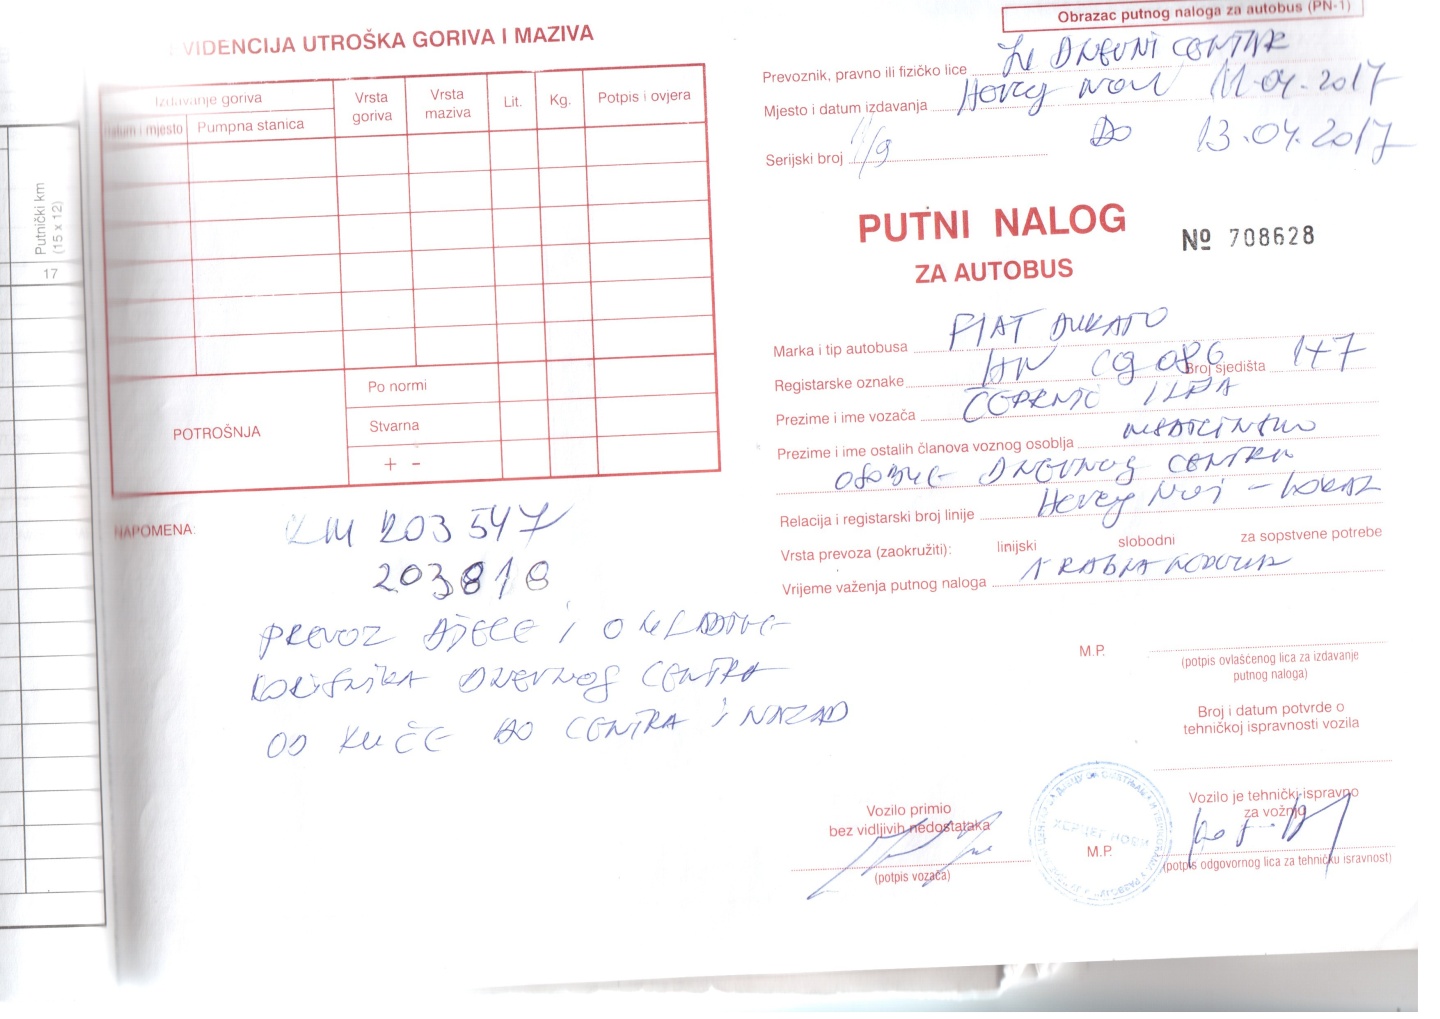 EVIDENCIJA UTROŠKA GORIVA I MAZIVA
Izdavanje goriva
Datum i mjesto
Pumpna stanica
Vrsta goriva
Vrsta maziva
Lit.
Kg.
Potpis i ovjera
POTROŠNJA
Po normi
Stvarna
+ -
Putnički km
(15 x 12)
17
NAPOMENA:
KM 203 547
203818
PREVOZ DJECE I OMLADINE
KORISNIKA DNEVNOG CENTRA
OD KUĆE DO CENTRA I NAZAD
Obrazac putnog naloga za autobus (PN-1)
Prevoznik, pravno ili fizičko lice JU DNEVNI CENTAR
Mjesto i datum izdavanja Herceg Novi 11.04.2017
DO 13.04.2017
Serijski broj /9
PUTNI NALOG
Nº 708628
ZA AUTOBUS
Marka i tip autobusa FIAT DUKATO
Registarske oznake HN CG 086 Broj sjedišta 1+7
Prezime i ime vozača ILIJA
Prezime i ime ostalih članova voznog osoblja MEDICINSKO
OSOBLJE DNEVNOG CENTRA
Relacija i registarski broj linije Herceg Novi - LOKAL
Vrsta prevoza (zaokružiti): linijski slobodni za sopstvene potrebe
Vrijeme važenja putnog naloga 1 RADNA
M.P.
(potpis ovlašćenog lica za izdavanje
putnog naloga)
Broj i datum potvrde o
tehničkoj ispravnosti vozila
Vozilo primio
bez vidljivih nedostataka
(potpis vozača)
ХЕРЦЕГ НОВИ
M.P.
Vozilo je tehnički ispravno
za vožnju
(potpis odgovornog lica za tehničku isravnost)